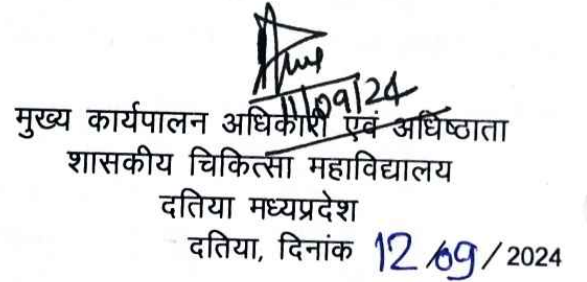 11/09/24
मुख्य कार्यपालन अधिकारी एवं अधिष्ठाता
शासकीय चिकित्सा महाविद्यालय
दतिया मध्यप्रदेश
दतिया, दिनांक 12/09/2024